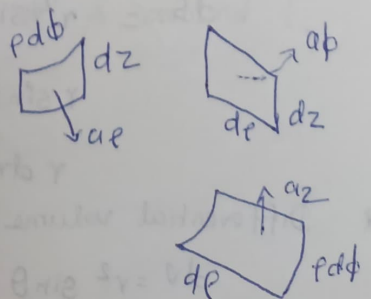 ρdϕ
dz
aρ
aϕ
dρ
dz
az
dρ
ρdϕ